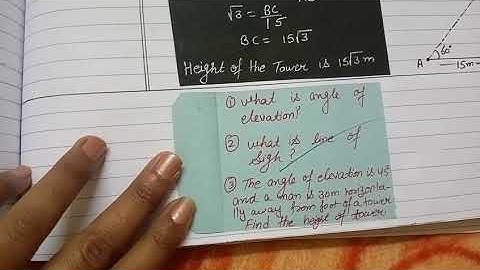 √3 = BC/15
BC = 15√3
Height of the Tower is 15√3 m
A 60°
15m
① What is angle of
elevation?
② What is line of
sigh?
③ The angle of elevation is 45
and a man is 30m horizonta-
lly away from foot of a tower
Find the height of tower